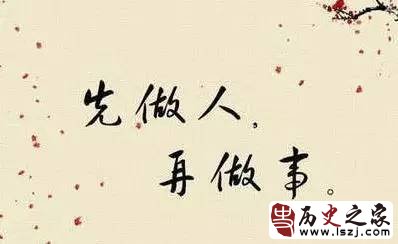 先做人，
再做事。
历史之家
www.lszj.com